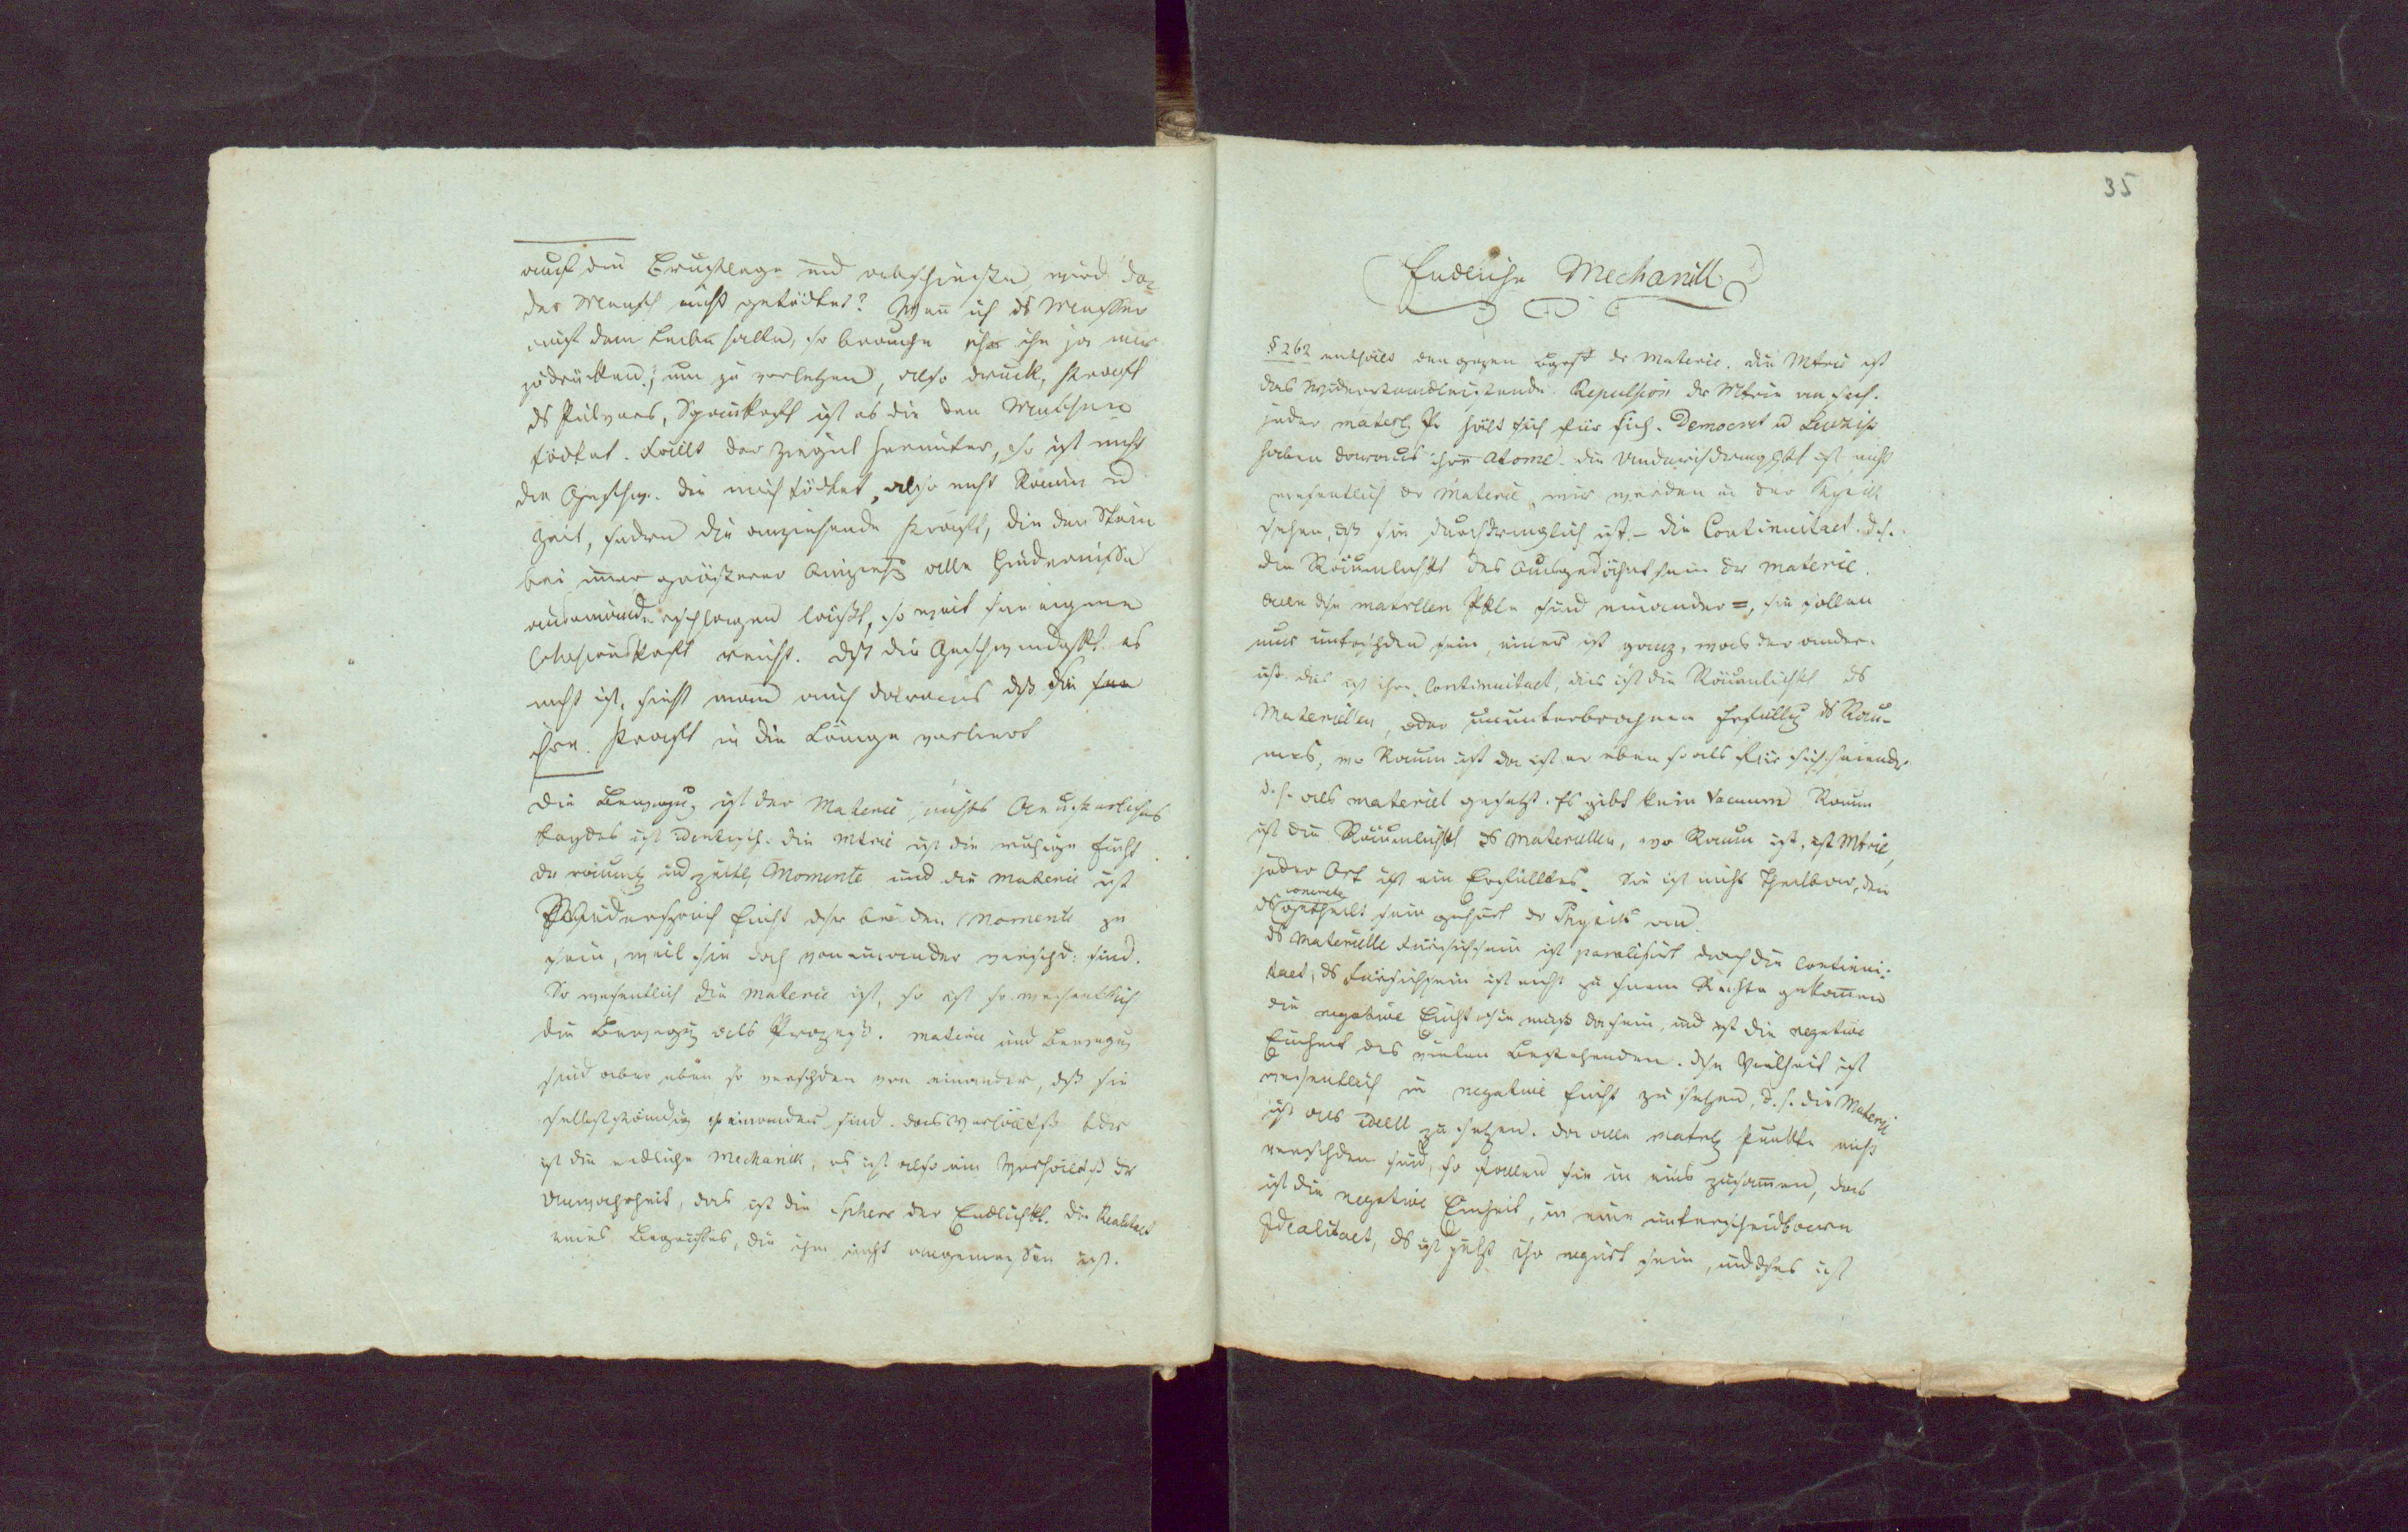 auf die Brust lege und abschieße, wird da
der Mensch nicht getödtet? Wenn ich ds Messer
auf dem Leibe halte, so brauche ich ihn ja nur
zudrücken, um zu verletzen, also druck, Kraft
ds Pulvers, Spannkraft ist es die den Menschen
tödtet. Fällt der Ziegel herunter, so ist nicht
die Geschw. die mich tödtet, also nicht Raum u
Zeit, sondern die anziehende Kraft, die den Stein
bei immer größerer Anziehg alle Hindernisse
auseinanderschlagen läßt, so weit seine eigene
Cohesionskraft reicht. Dß die Geschwindigkt es
nicht ist, sieht man auch daraus dß die
ihre Kraft in die Länge verliert
Die Bewegug ist der Materie nichts Aeußerliches
beydes ist identisch. die Mtrie ist die ruhige Einht
der räumlich und zeitlich Momente und die Materie ist
Widerspruch Einht dsr beiden Momente zu
sein, weil sie doch voneinander verschd: sind.
So wesentlich die Materie ist, so ist so wesentlich
die Bewegug als Prozeß. Materie und Bewegug
sind aber eben so verschden von einander, dß sie
selbstständig einander sind. das Verhältß
ist die endliche Mechanik, es ist also ein Verhältß dr
Unwahrheit, das ist die Sphere der Endlichkt. die Realitaet
eines Begriffes, die ihm nicht angemessen ist.
35
Endliche Mechanik
§ 262 enthält den ganzen Bgriff dr Materie. die Mtrie ist
das Widerstandleistende Repulsion dr Mtrie an sich.
jeder hält sich für sich. Democrit u Leuzip
haben daraus ihre Atome. die Undurchdringlkt ist nicht
wesentlich dr Materie, wir werden in der Physik
sehen, dß sie durchdringlich ist. – die Continuitaet. d. h.
die Räumlichkt des Ausgedähntsein der Materie.
alle dse matriellen Pkte sind einander =, sie sollen
nur untrschden sein, einer ist ganz, was der andere
ist. dies ist ihre Continuitaet, dies ist die Räumlichkt ds
Materiellen, oder ununterbrochene Erfüllg ds Rau-
mes, wo Raum ist da ist er eben so als für sich seiendes
d. h. als materiel gesetzt. Es gibt kein Vacuum Raum
ist die Räumlichkt ds Materiellen, wo Raum ist, ist Mtrie,
jeder Ort ist ein Erfülltes. Sie ist nicht theilbar, den
concrete
ds getheilt sein gehört dr Physik an.
ds Materielle Fürsichsein ist paralisirt durch die Continui-
taet, ds Fürsichsein ist nicht zu seinem Rechte gekommen
die negative Einht sie muß da sein, und ist die negative
Einheit des vielen Bestehenden. dse Vielheit ist
wesentlich in negative Einht zu setzen, d. h. die Materie
ist als ideell zu setzen. da alle Punkte nicht
verschden sind, so fallen sie in eins zusammen, das
ist die negative Einheit, in eine unterscheidbare
Idealitaet, ds ist ihr negirt sein, und dses ist